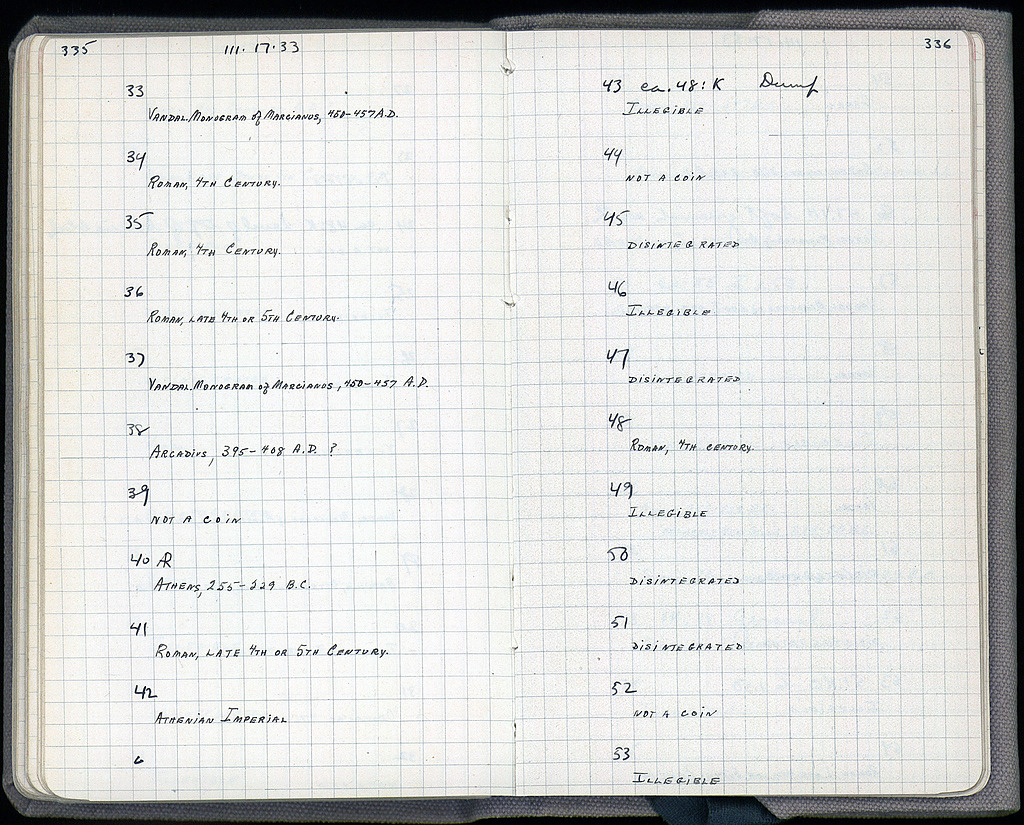 335 III. 17.33
33
VANDAL. MONOGRAM of MARCIANUS, 450-457 A.D.
34
ROMAN, 4TH CENTURY.
35
ROMAN, 4TH CENTURY.
36
ROMAN, LATE 4TH OR 5TH CENTURY.
37
VANDAL. MONOGRAM of MARCIANUS, 450-457 A.D.
38
ARCADIUS, 395-408 A.D. ?
39
NOT A COIN
40 AR
ATHENS, 255-229 B.C.
41
ROMAN, LATE 4TH OR 5TH CENTURY.
42
ATHENIAN IMPERIAL
6
336
43 ca. 48: K Dump
ILLEGIBLE
44
NOT A COIN
45
DISINTEGRATED
46
ILLEGIBLE.
47
DISINTEGRATED
48
ROMAN, 4TH CENTURY.
49
ILLEGIBLE
50
DISINTEGRATED
51
DISINTEGRATED
52
NOT A COIN
53
ILLEGIBLE